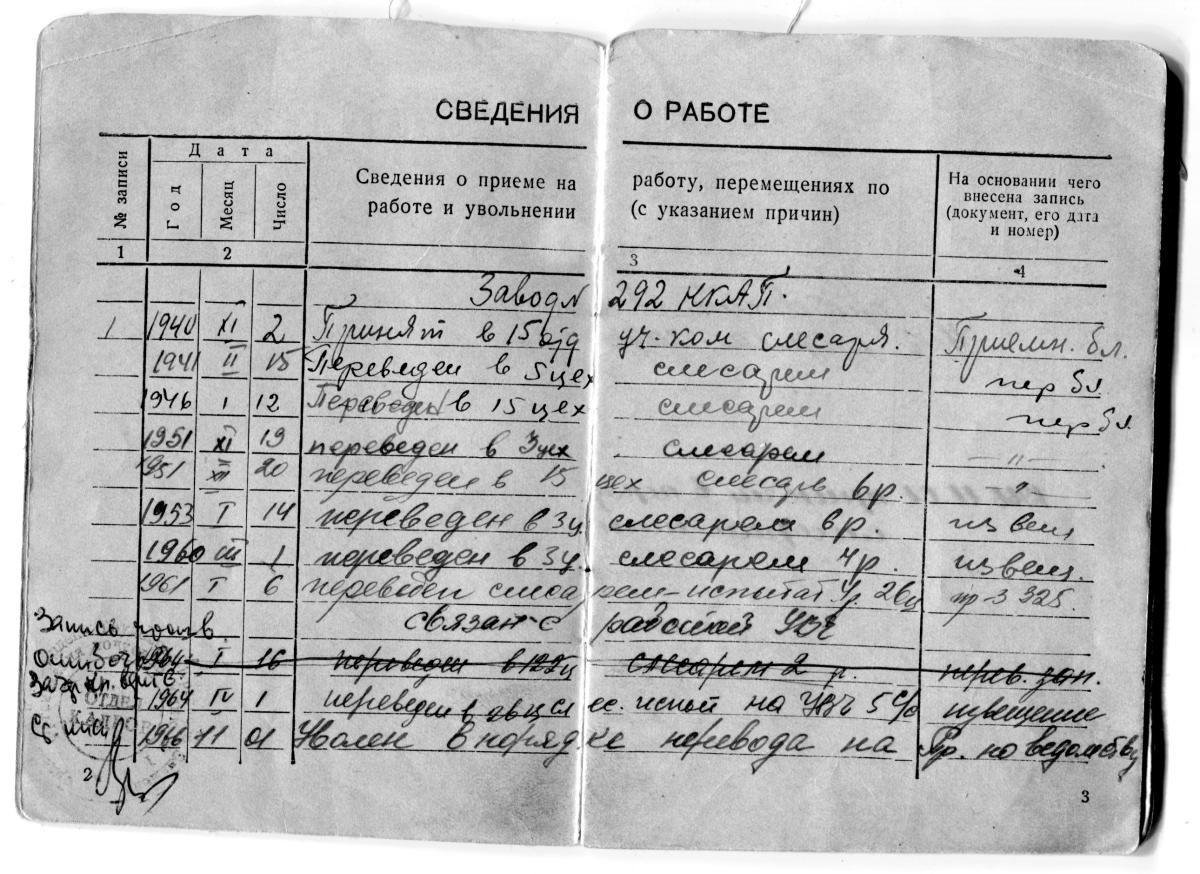 СВЕДЕНИЯ О РАБОТЕ
№ записи
Дата
Год
Месяц
Число
Сведения о приеме на работу, перемещениях по
работе и увольнении (с указанием причин)
На основании чего
внесена запись
(документ, его дата
и номер)
1 2 3 4
Завод № 292 НКАП.
1 1940 XI 2 Принят в 15 отд уч-ком слесаря. Приемн. бл.
1941 II 15 Переведен в 5 цех слесарем пер бл
1946 I 12 Переведен в 15 цех слесарем пер бл
1951 XI 19 переведен в 3 цех слесарем —"—
1951 XII 20 переведен в 15 цех слесарь 6 р. "
1953 I 14 переведен в 3 ц. слесарем 6 р. извещ
1960 III 1 переведен в 3 ц. слесарем 4 р. извещ.
1961 I 6 переведен слесарем-испытат 4 р. 26 ц пр 3 325.
связан с работой УВЧ
Запись
1964 I 16 переведен в слесарем 2 р. перев. зап.
1964 IV 1 переведен в слес. испыт на УВЧ 5 извещение
ОТДЕЛ
КАДРОВ
1966 11 01 Уволен в порядке перевода на Пр. по ведомству
2
3